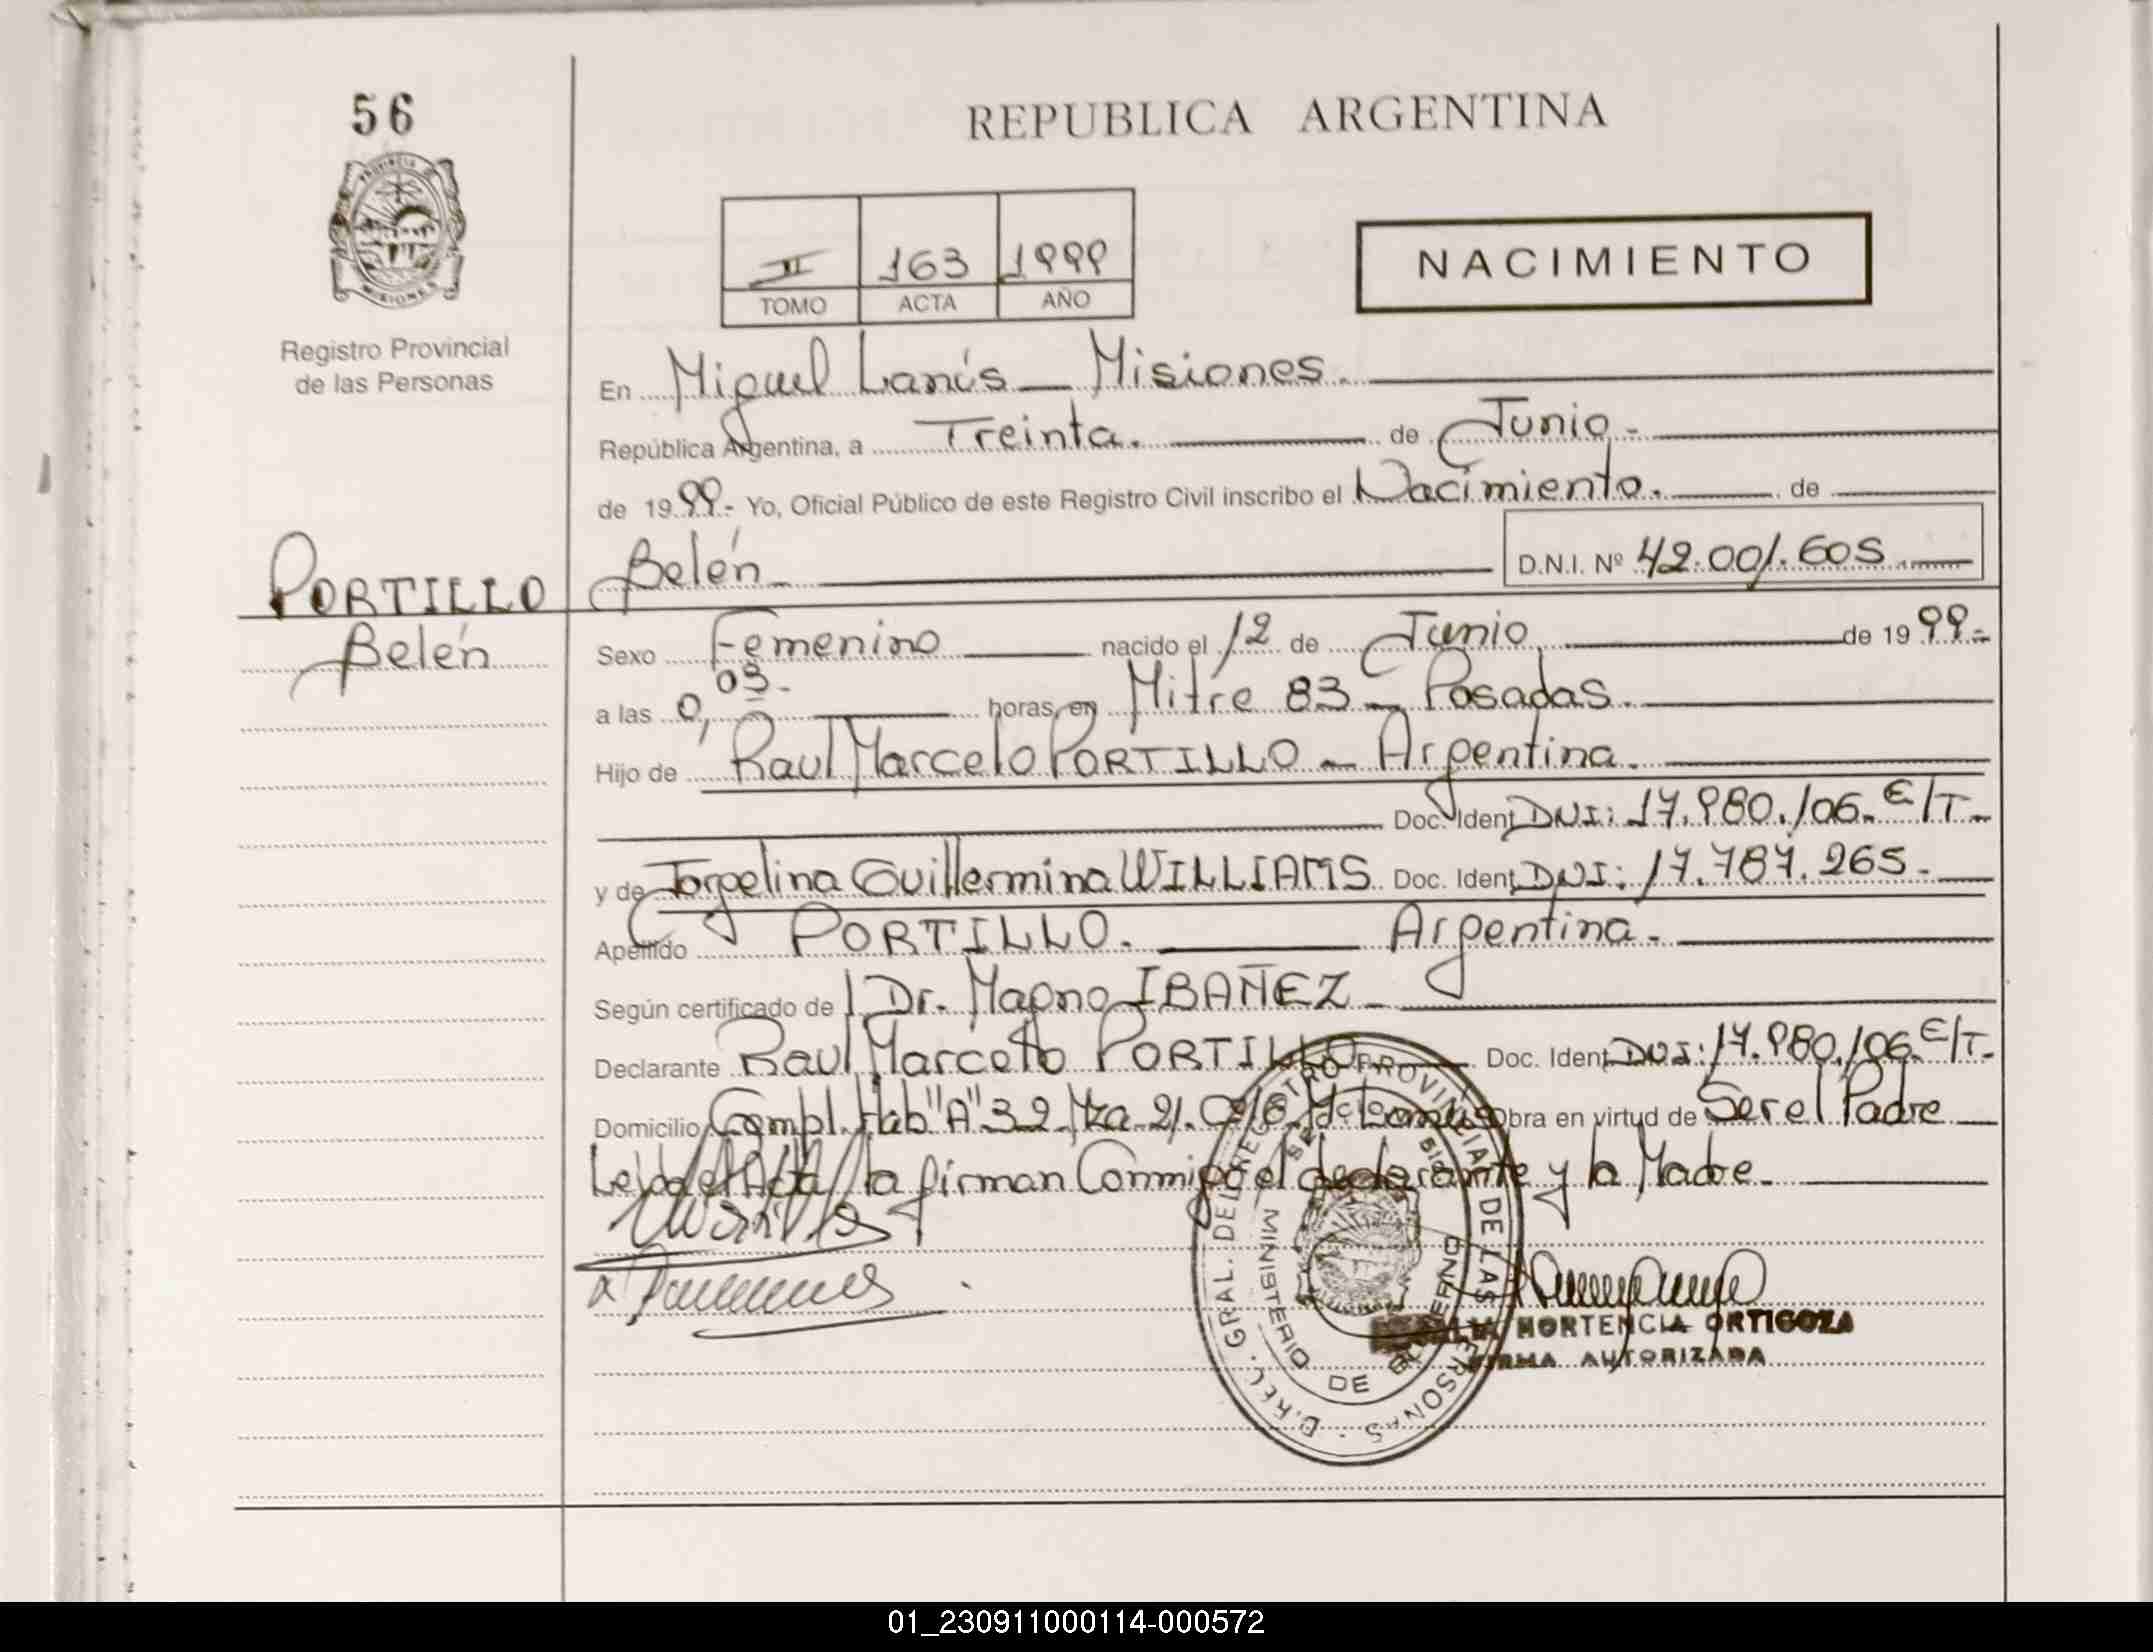 56
REPUBLICA ARGENTINA
PROVINCIA DE MISIONES
Registro Provincial
de las Personas
II 163 1999
TOMO ACTA AÑO
NACIMIENTO
En Miguel Lanús - Misiones.
República Argentina, a Treinta. de Junio.-
de 1999.- Yo, Oficial Público de este Registro Civil inscribo el Nacimiento. de
Belén D.N.I. Nº 42.001.605
PORTILLO
Belén
Sexo Femenino nacido el 12 de Junio de 1999.-
a las 0,03.- horas, en Mitre 83 - Posadas.
Hijo de Raul Marcelo PORTILLO - Argentina.
Doc. Ident. DNI: 17.980.106. E/T.-
y de Jorgelina Guillermina WILLIAMS Doc. Ident. DNI: 17.787.265.-
Apellido PORTILLO. Argentina.-
Según certificado de Dr. Magno IBAÑEZ -
Declarante Raul Marcelo PORTILLO Doc. Ident. DNI: 17.980.106. E/T.-
Domicilio Compl. Hab "A" 32 Mza 21. Obra en virtud de Ser el Padre
Leída el Acta, la firman Conmigo el declarante y la Madre.
HORTENCIA ORTIGOZA
FIRMA AUTORIZADA
GRAL. DEL REGISTRO PROVINCIAL DE LAS PERSONAS
MINISTERIO DE GOBIERNO
01_230911000114-000572